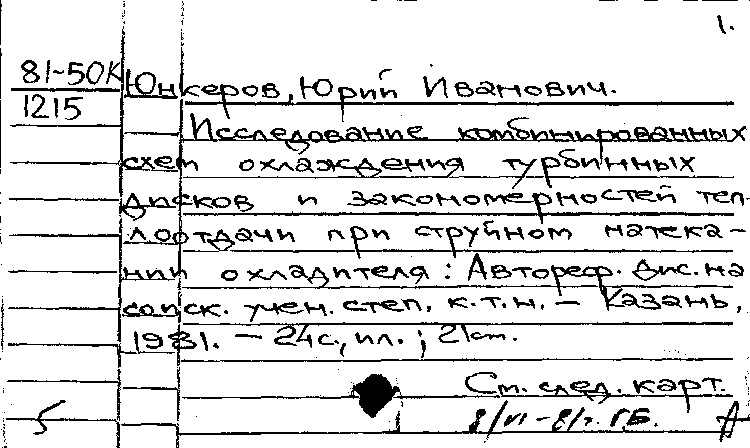 1.
81-50К Юнкеров, Юрий Иванович.
1215
Исследование комбинированных
схем охлаждения турбинных
дисков и закономерностей теп-
лоотдачи при струйном натека-
нии охладителя: Автореф. дис. на
соиск. учен. степ. к.т.н. – Казань,
1981. – 24с., ил.; 21см.
См. след. карт.
5